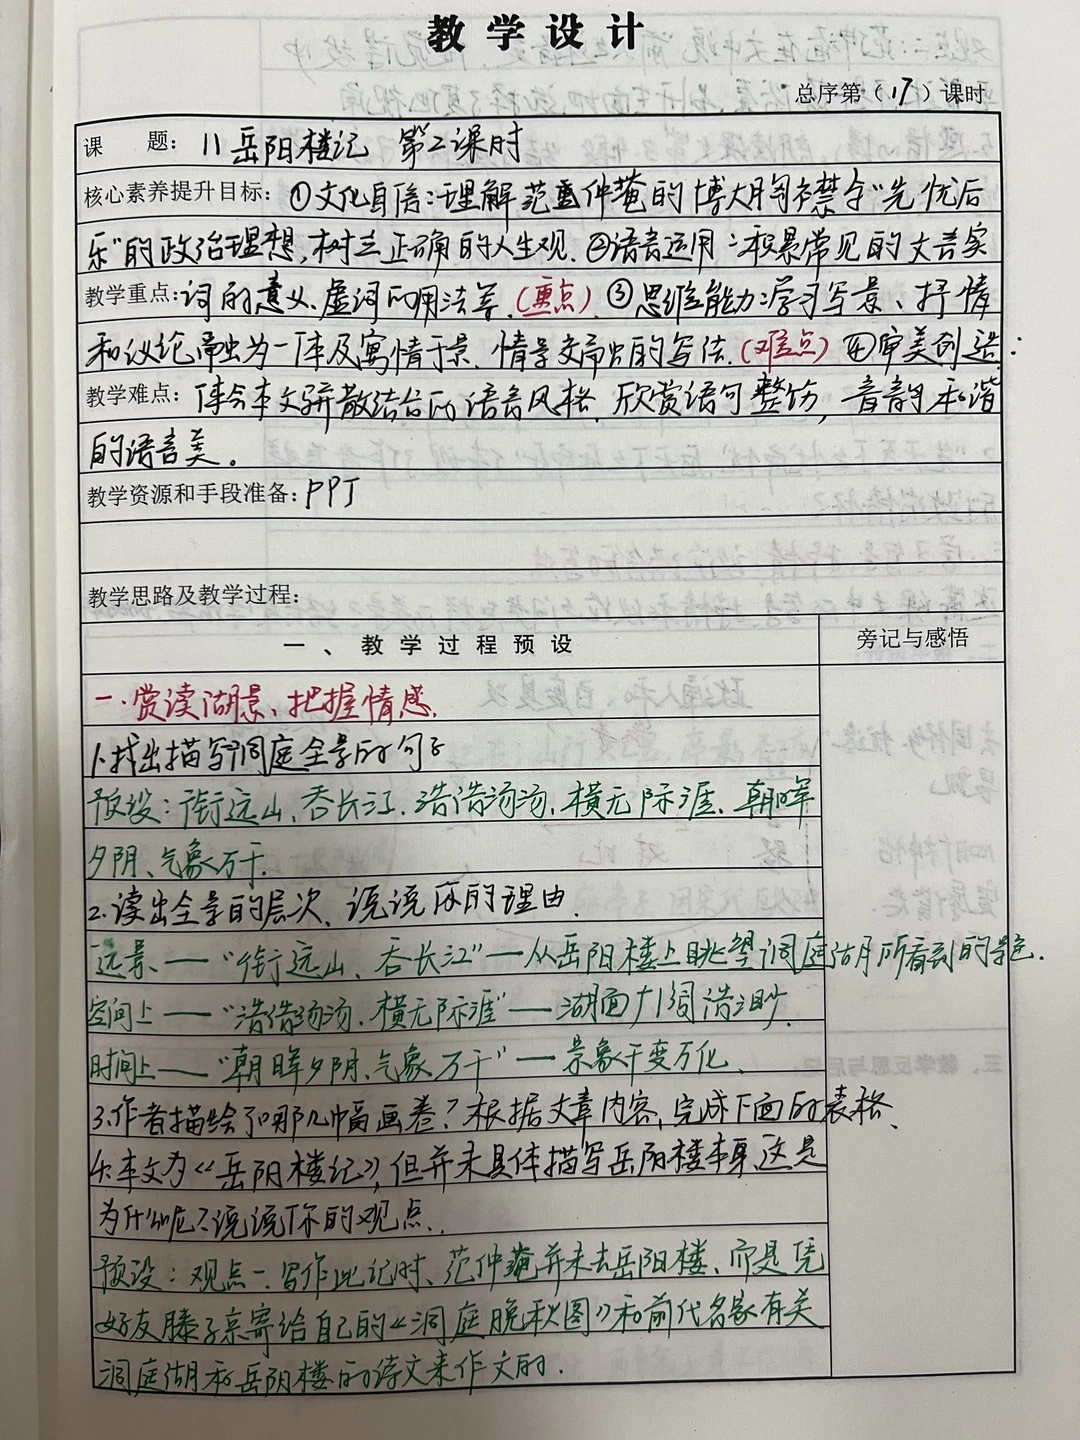 教学设计
总序第（17）课时
课 题：11 岳阳楼记 第二课时
核心素养提升目标：①文化自信：理解范仲淹的博大胸襟与“先忧后
乐”的政治理想,树立正确的人生观.②语言运用：积累常见的文言实
教学重点：词的意义、虚词的用法等.(重点).③思维能力：学习写景、抒情
和议论融为一体及寓情于景、情景交融的写法.(难点) ④审美创造：
教学难点：体会本文骈散结合的语言风格.欣赏语句整饬,音韵和谐
的语言美。
教学资源和手段准备：PPT
教学思路及教学过程：
一、教学过程预设
旁记与感悟
一.赏读湖景、把握情感.
1.找出描写洞庭全景的句子
预设：衔远山、吞长江.浩浩汤汤,横无际涯.朝晖
夕阴、气象万千.
2.读出全景的层次、说说你的理由.
远景——“衔远山、吞长江”—从岳阳楼上眺望洞庭湖所看到的景色.
空间上——“浩浩汤汤.横无际涯”—湖面广阔浩渺.
时间上——“朝晖夕阴、气象万千”—景象千变万化、
3.作者描绘了哪几幅画卷？根据文章内容,完成下面的表格、
4.本文为《岳阳楼记》,但并未具体描写岳阳楼本身.这是
为什么呢？说说你的观点.
预设：观点一.写作此记时、范仲淹并未去岳阳楼、而是凭
好友滕子京寄给自己的《洞庭晚秋图》和前代名家有关
洞庭湖和岳阳楼的诗文来作文的.